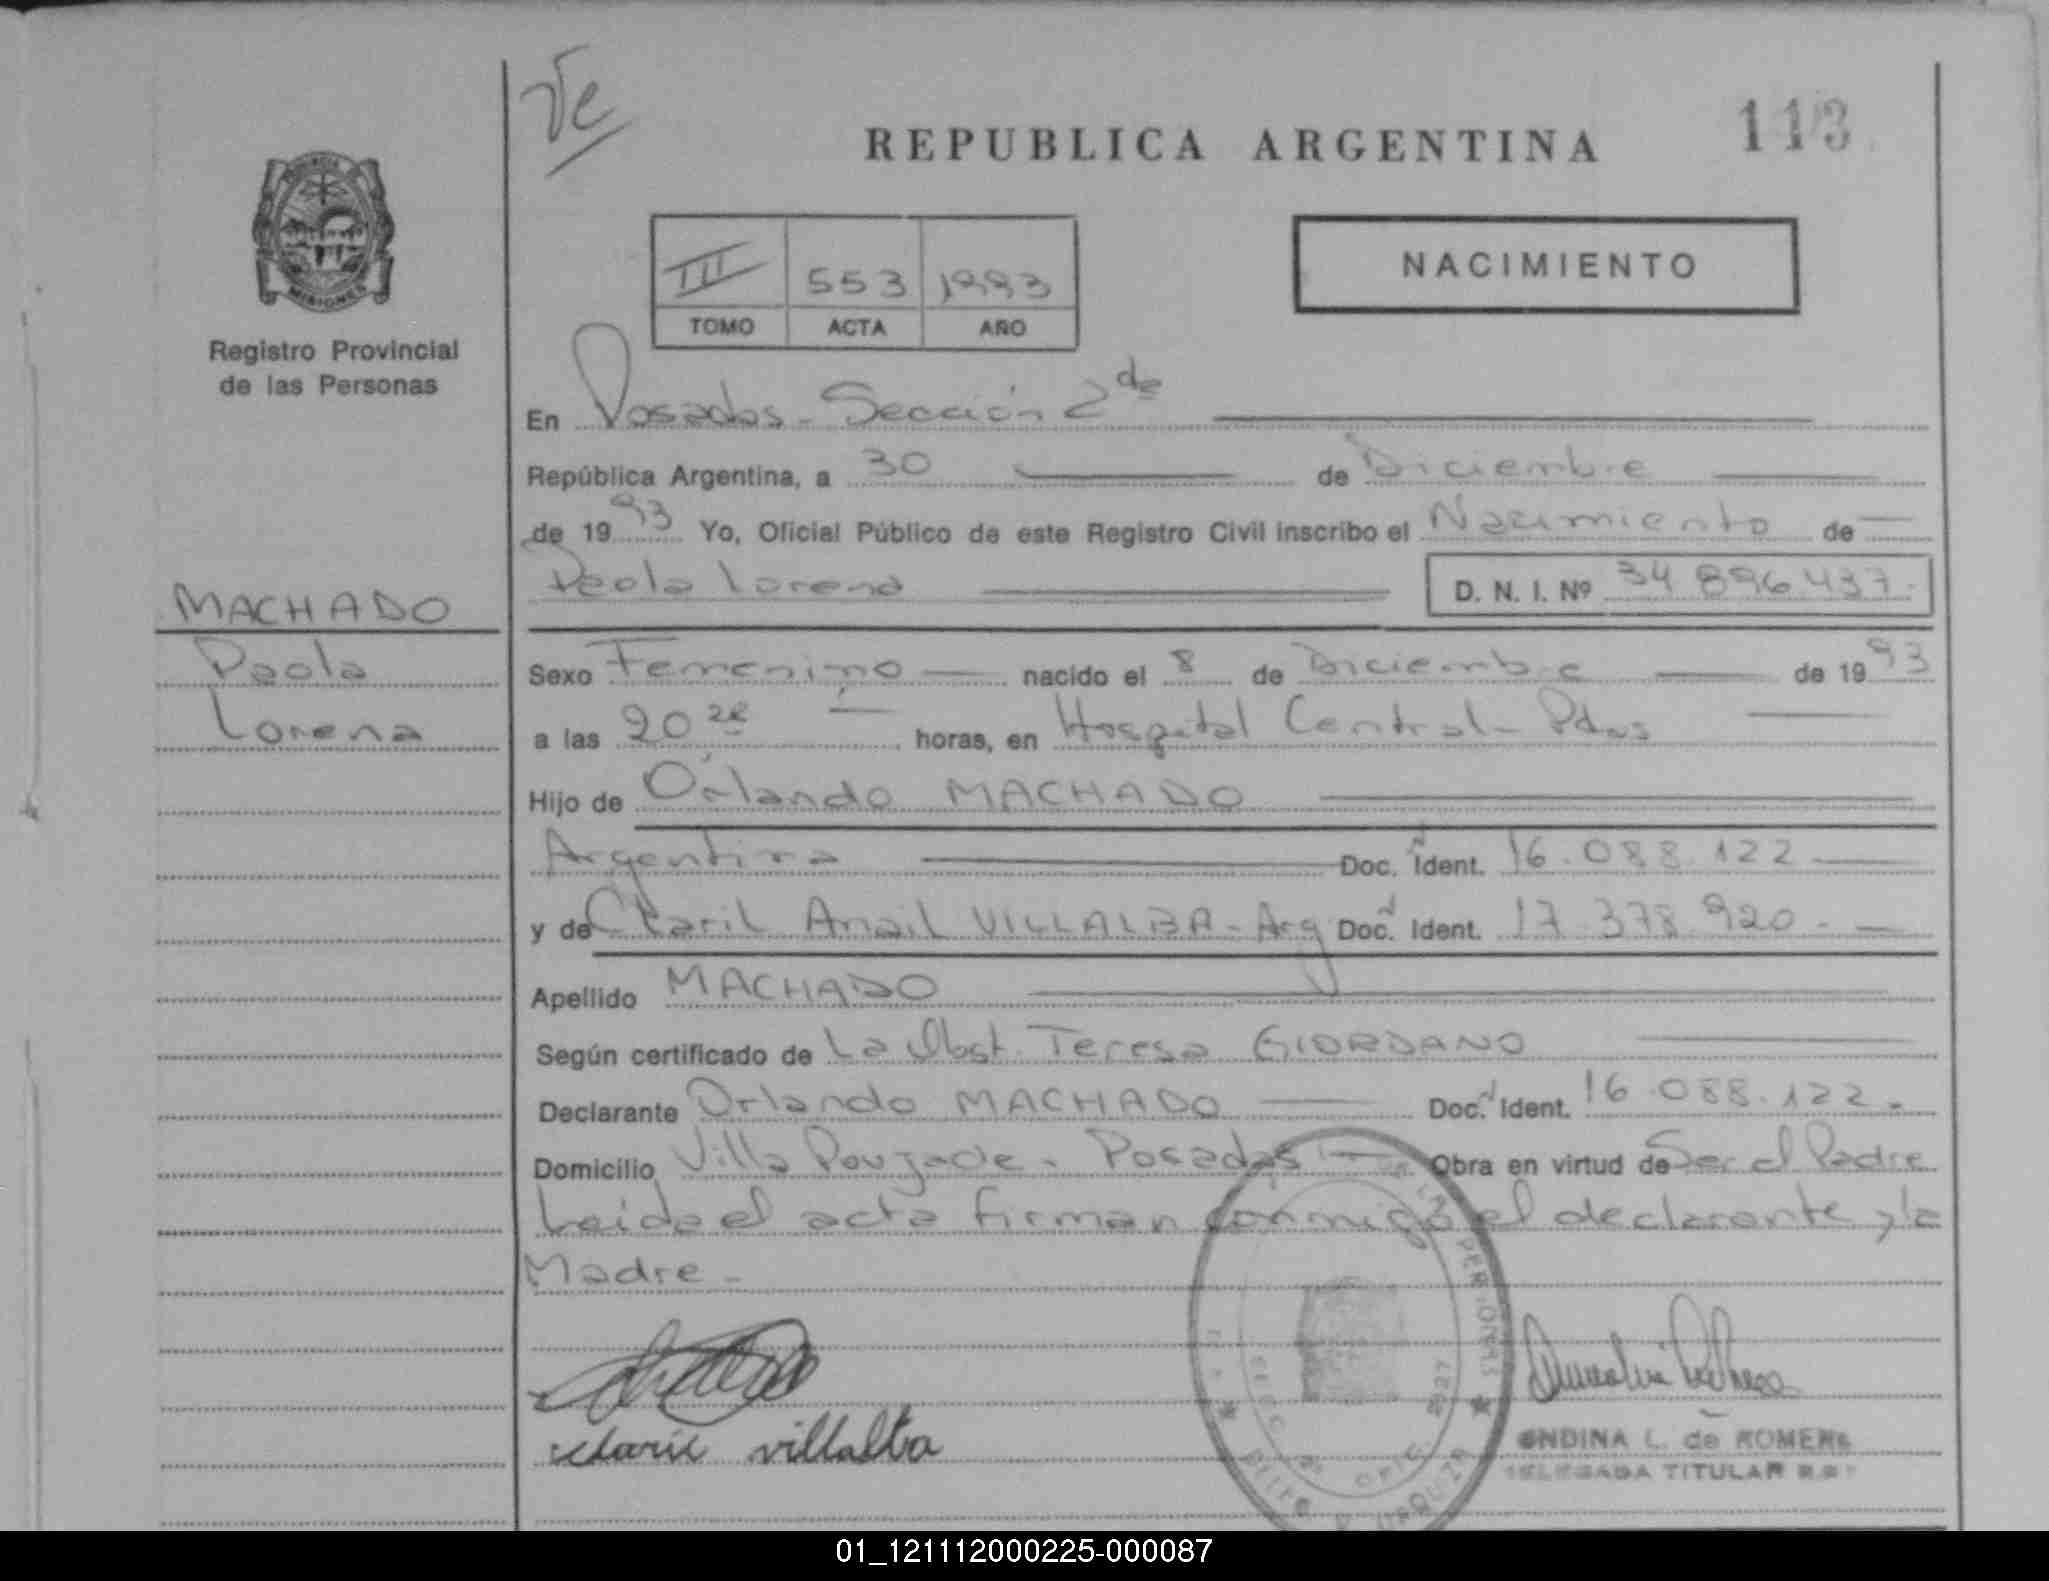 Ve
REPUBLICA ARGENTINA
113
PROVINCIA
MISIONES
Registro Provincial
de las Personas
III 553 1993
TOMO ACTA AÑO
NACIMIENTO
En Posadas - Sección 2da
República Argentina, a 30 de Diciembre
de 1993 Yo, Oficial Público de este Registro Civil inscribo el Nacimiento de
Paola Lorena D. N. I. Nº 34 896.437.
MACHADO
Paola
Lorena
Sexo Femenino nacido el 8 de Diciembre de 1993
a las 20 horas, en Hospital Central - Pdas
Hijo de Orlando MACHADO
Argentina Doc. Ident. 16.088.122
y de Claril Anail VILLALBA - Arg Doc. Ident. 17.378.920.-
Apellido MACHADO
Según certificado de La Obst. Teresa GIORDANO
Declarante Orlando MACHADO Doc. Ident. 16.088.122.
Domicilio Villa Poujade - Posadas Obra en virtud de Ser el Padre
Leida el acta firman conmigo el declarante y la
Madre -
Claril villalba
ONDINA L. de ROMERO
DELEGADA TITULAR
01_121112000225-000087